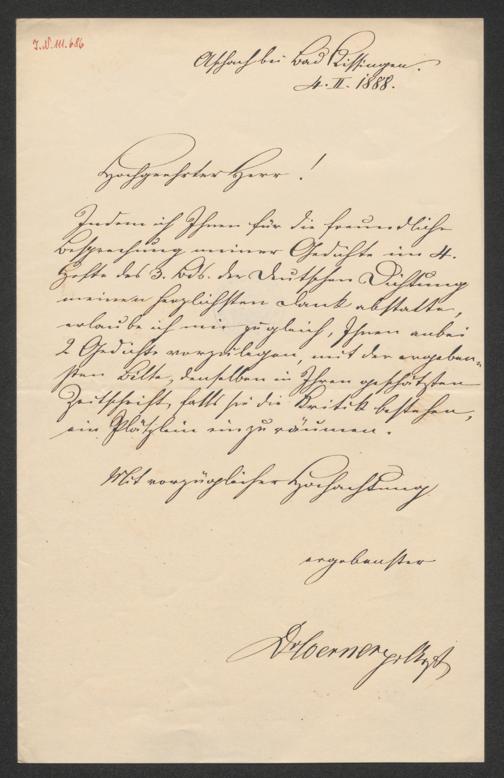 I.N. 111.686
Aschach bei Bad Kissingen.
4. II. 1888.
Hochgeehrter Herr!
Indem ich Ihnen für die freundliche
Besprechung meiner Gedichte im 4.
Hefte des 3. Bds. der Deutschen Dichtung
meinen herzlichsten Dank abstatte,
erlaube ich mir zugleich, Ihnen anbei
2 Gedichte vorzulegen, mit der ergeben-
sten Bitte, denselben in Ihrer geschätzten
Zeitschrift, falls sie die Kritik bestehen,
ein Plätzlein einzuräumen.
Mit vorzüglicher Hochachtung
ergebenster
Dr Hoerner